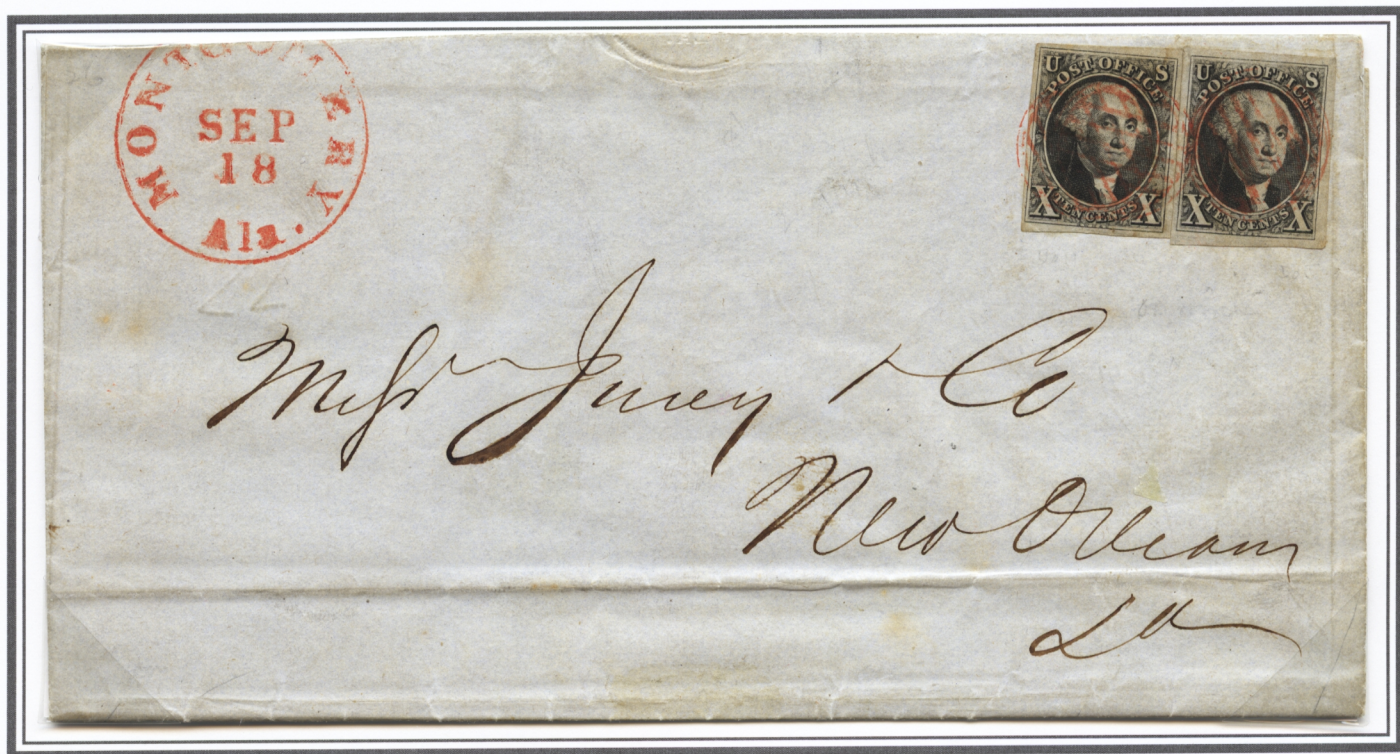 MONTGOMERY
SEP
18
Ala.
U S
POST OFFICE
X TEN CENTS X
U S
POST OFFICE
X TEN CENTS X
Messr Jurey & Co
New Orleans
La